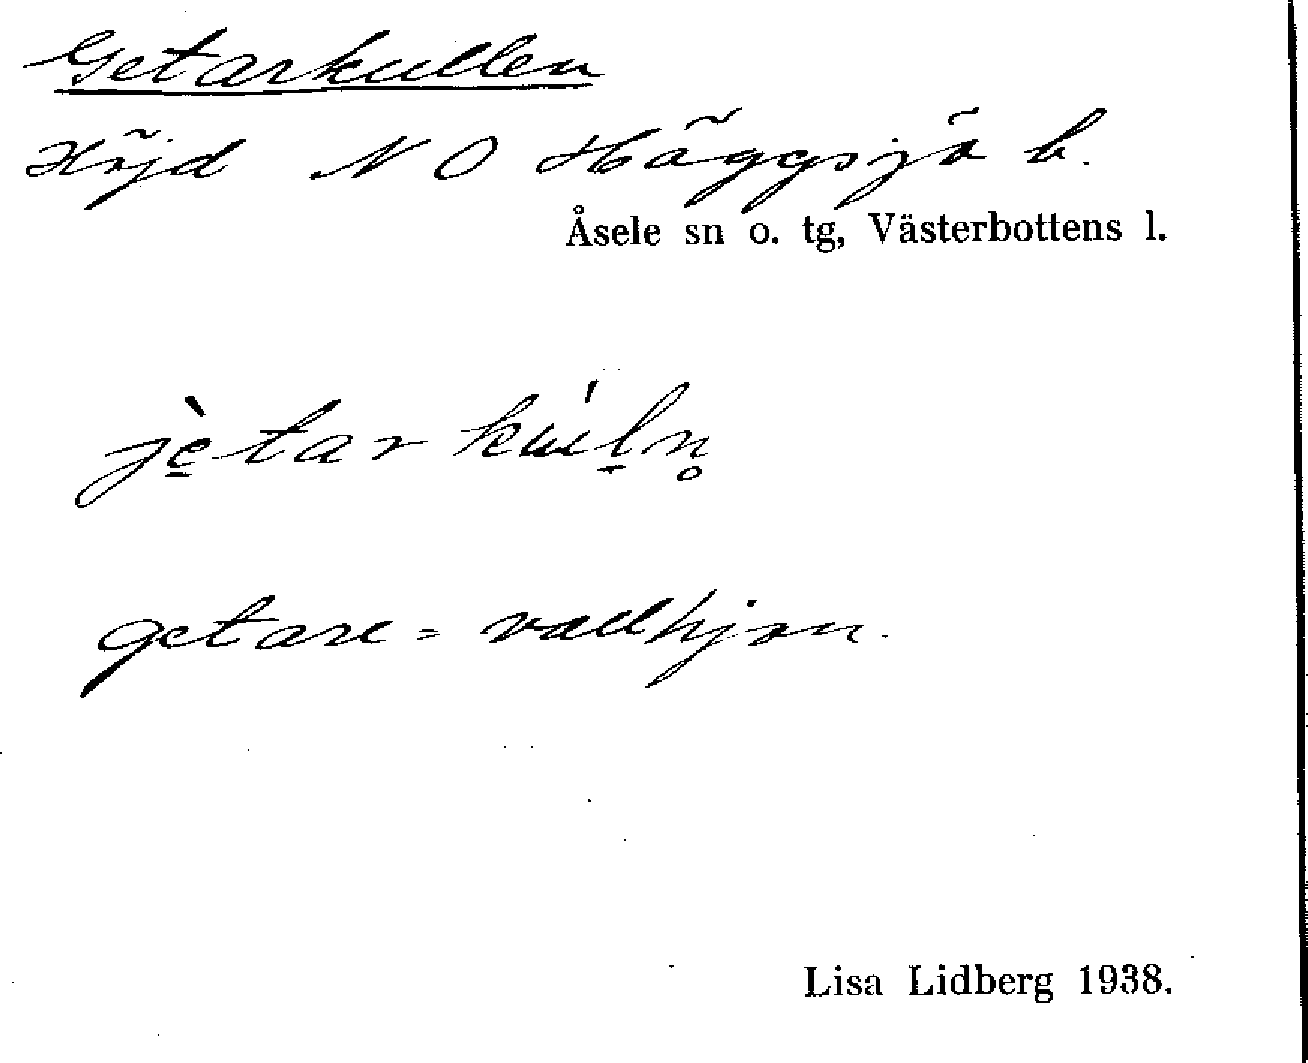 Getarkullen
Höjd NO Häggsjö b.
Åsele sn o. tg, Västerbottens l.
jè̠tar kúl̠n̥
getare = vallhjon.
Lisa Lidberg 1938.